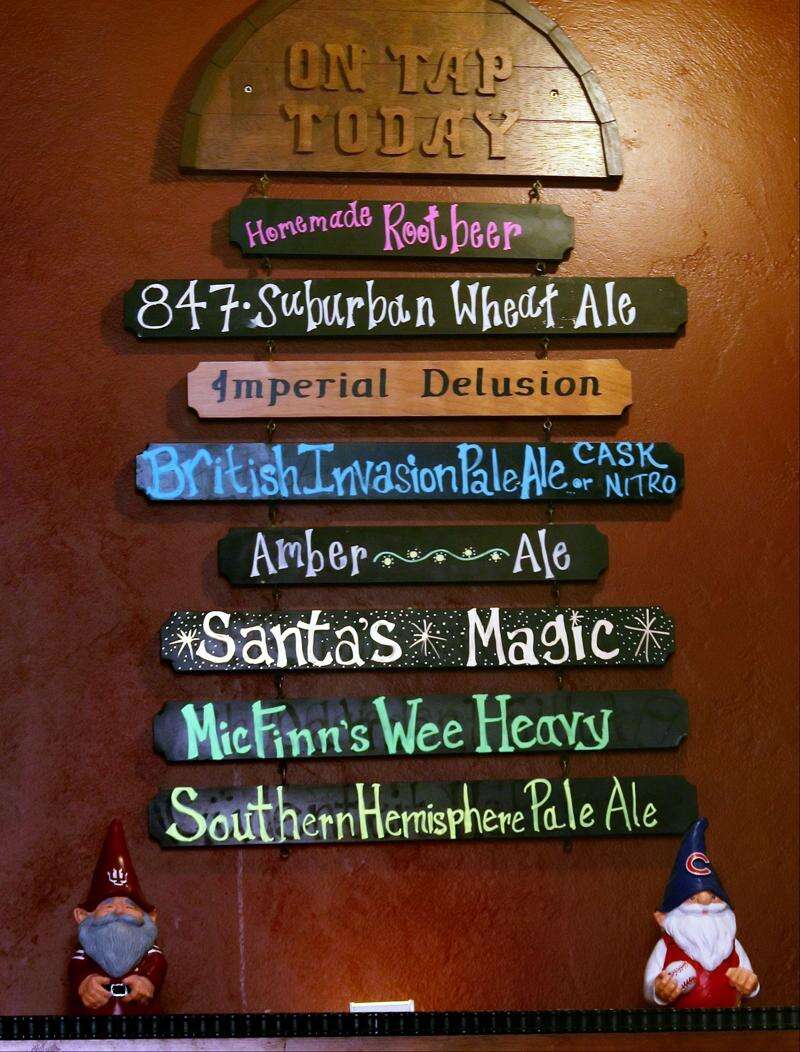 ON TAP
TODAY
Homemade Rootbeer
847·Suburban Wheat Ale
Imperial Delusion
British Invasion Pale Ale CASK
or NITRO
Amber Ale
Santa's Magic
MicFinn's Wee Heavy
Southern Hemisphere Pale Ale
C